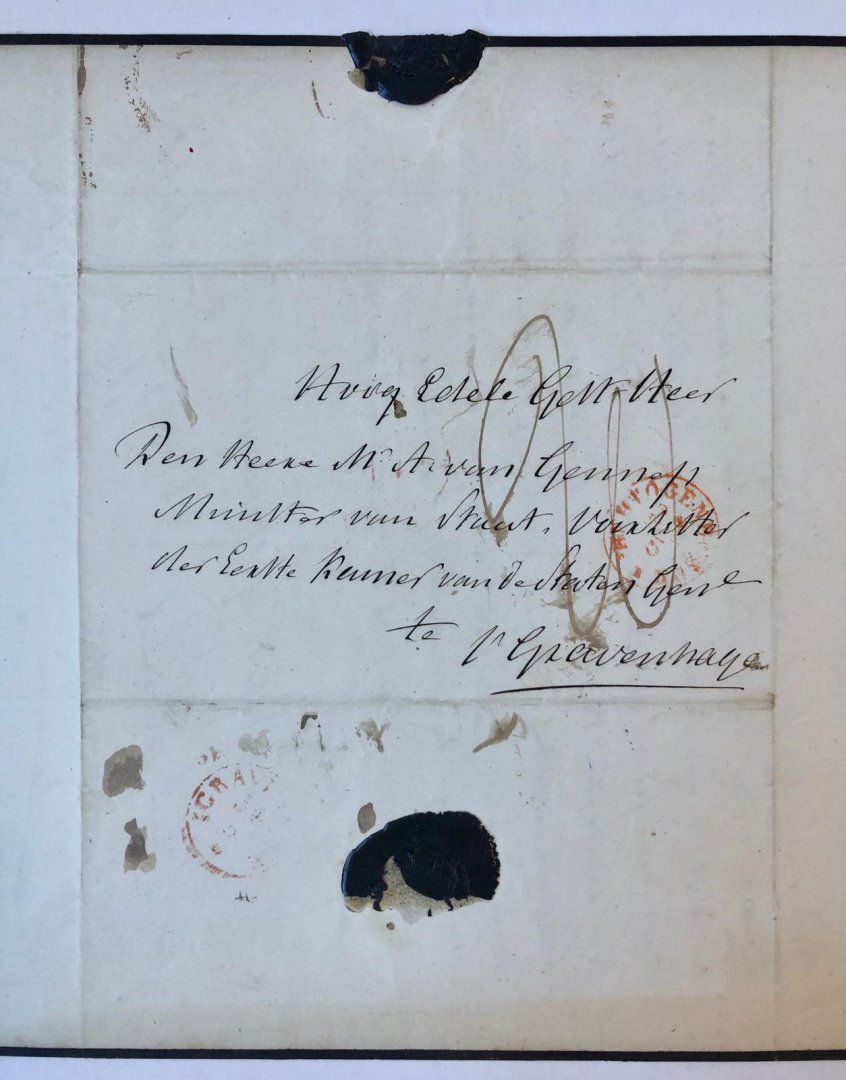 Hoog Edele Gestr Heer
Den Heere Mr A. van Gennep
Minister van Staat, Voorzitter
der Eerste Kamer van de Staten Genl
te s' Gravenhage
HERTOGEN
SGRA